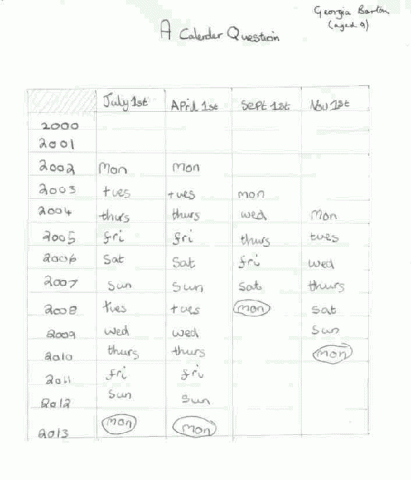 Georgia Barton
(aged 9)
A Calender Question
July 1st April 1st Sept 1st Nov 1st
2000
2001
2002 Mon Mon
2003 tues tues mon
2004 thurs thurs wed Mon
2005 fri fri thurs tues
2006 Sat Sat fri wed
2007 Sun Sun Sat thurs
2008 tues tues mon Sat
2009 wed wed Sun
2010 thurs thurs mon
2011 fri fri
2012 Sun Sun
2013 mon mon